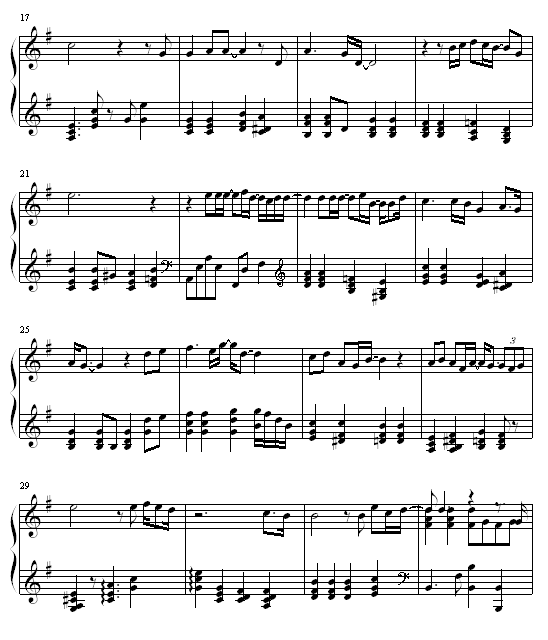 17
21
25
3
29